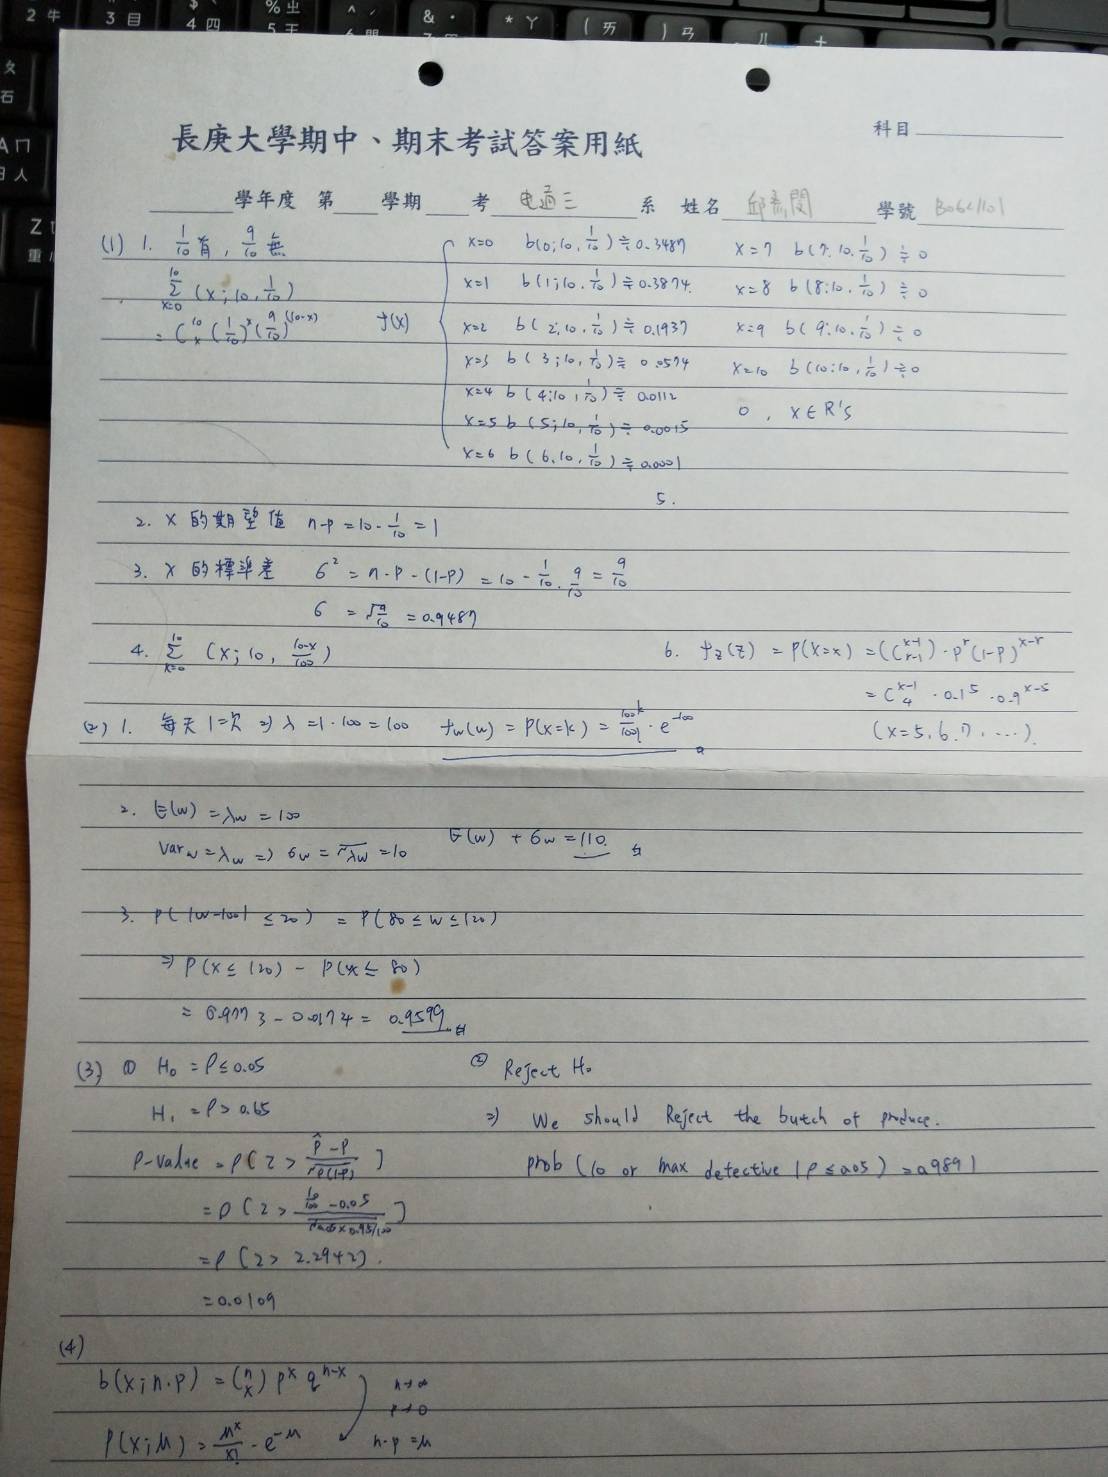 長庚大學期中、期末考試答案用紙
科目
學年度 第 學期 考 电通三 系 姓名 學號
(1) 1. 1/10 有, 9/10 無
10 Σ x=0 (x; 10, 1/10)
= C 10 x (1/10)^x (9/10)^(10-x)
f(x)
x=0 b(0; 10, 1/10) ≒ 0.3487
x=1 b(1; 10, 1/10) ≒ 0.3874
x=2 b(2; 10, 1/10) ≒ 0.1937
x=3 b(3; 10, 1/10) ≒ 0.0574
x=4 b(4; 10, 1/10) ≒ 0.0112
x=5 b(5; 10, 1/10) ≒ 0.0015
x=6 b(6, 10, 1/10) ≒ 0.0001
x=7 b(7. 10. 1/10) ≒ 0
x=8 b(8; 10, 1/10) ≒ 0
x=9 b(9; 10, 1/10) ≒ 0
x=10 b(10; 10, 1/10) ≒ 0
0 , x ∈ R's
5.
2. X 的期望值 n·p = 10·1/10 = 1
3. X 的標準差 6² = n·p·(1-p) = 10·1/10·9/10 = 9/10
6 = √9/10 = 0.9487
4. 10 Σ x=0 (x; 10, 10-x/100)
6. fz(z) = P(X=x) = (C x-1 r-1)·p^r (1-p)^x-r
= C x-1 4 · 0.1^5 · 0.9^x-5
(x=5, 6, 7, ...)
(2) 1. 每天1次 ⇒ λ = 1·100 = 100 fw(w) = P(x=k) = 100^k/100! · e^-100
2. E(w) = λw = 100
Var w = λw ⇒ 6w = √λw = 10 E(w) + 6w = 110
3. P(|w-100| ≤ 20) = P(80 ≤ w ≤ 120)
⇒ P(x ≤ 120) - P(x ≤ 80)
= 0.9773 - 0.0174 = 0.9599
(3) ① H₀ = P ≤ 0.05
H₁ = P > 0.05
P-value = P(Z > p̂-p/√p(1-p))
= P(Z > 10/100 - 0.05/√0.05×0.95/100)
= P(Z > 2.2942)
= 0.0109
② Reject H₀
⇒ We should Reject the butch of produce.
prob (10 or max detective | p ≤ 0.05) = 0.9891
(4)
b(x; n·p) = (n x) p^x q^n-x
n→∞
p→0
n·p = μ
P(x; μ) = μ^x/x! · e^-μ